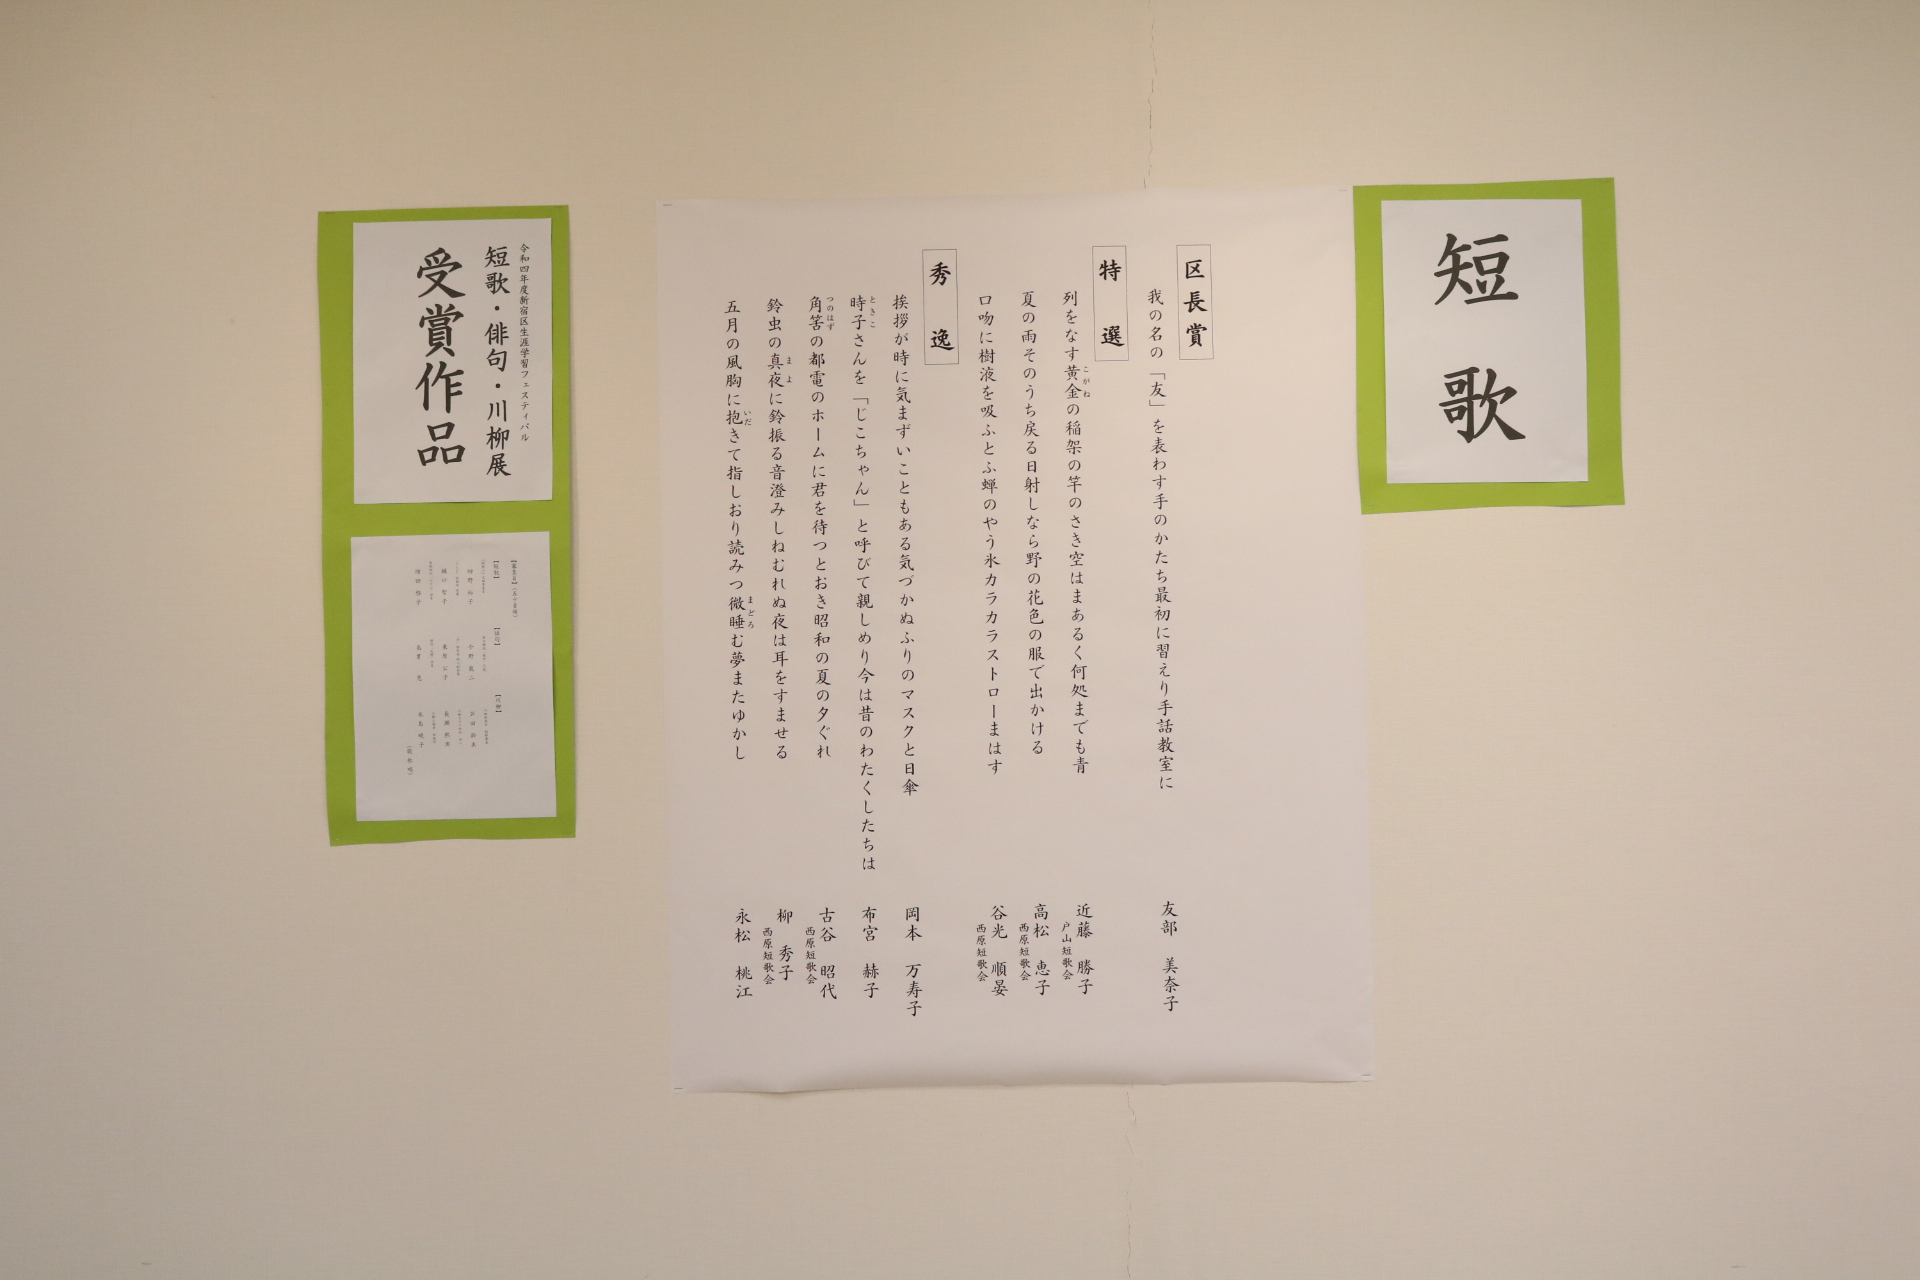 短歌
区長賞
我の名の「友」を表わす手のかたち最初に習えり手話教室に
友部 美奈子
特選
列をなす黄金の稲架の竿のさき空はまあるく何処までも青
こがね
近藤 勝子
戸山短歌会
夏の雨そのうち戻る日射しなら野の花色の服で出かける
高松 恵子
西原短歌会
口吻に樹液を吸ふとふ蝉のやう氷カラカラストローまはす
谷光 順晏
西原短歌会
秀逸
挨拶が時に気まずいこともある気づかぬふりのマスクと日傘
岡本 万寿子
時子さんを「じこちゃん」と呼びて親しめり今は昔のわたくしたちは
ときこ
布宮 赫子
角筈の都電のホームに君を待つとおき昭和の夏の夕ぐれ
つのはず
古谷 昭代
西原短歌会
鈴虫の真夜に鈴振る音澄みしねむれぬ夜は耳をすませる
まよ
柳 秀子
西原短歌会
五月の風胸に抱きて指しおり読みつ微睡む夢またゆかし
いだ
まどろ
永松 桃江
令和四年度新宿区生涯学習フェスティバル
短歌・俳句・川柳展
受賞作品
【短歌】
【俳句】
【川柳】